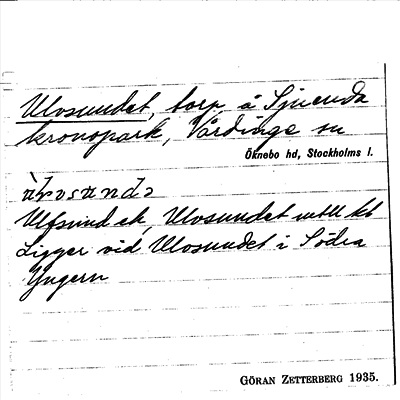 Ulvsundet, torp å Sjuenda
kronopark, Vårdinge sn
Öknebo hd, Stockholms l.
Ulfsund ek, Ulvsundet
Ligger vid Ulvsundet i Södra
Yngern
GÖRAN ZETTERBERG 1935.